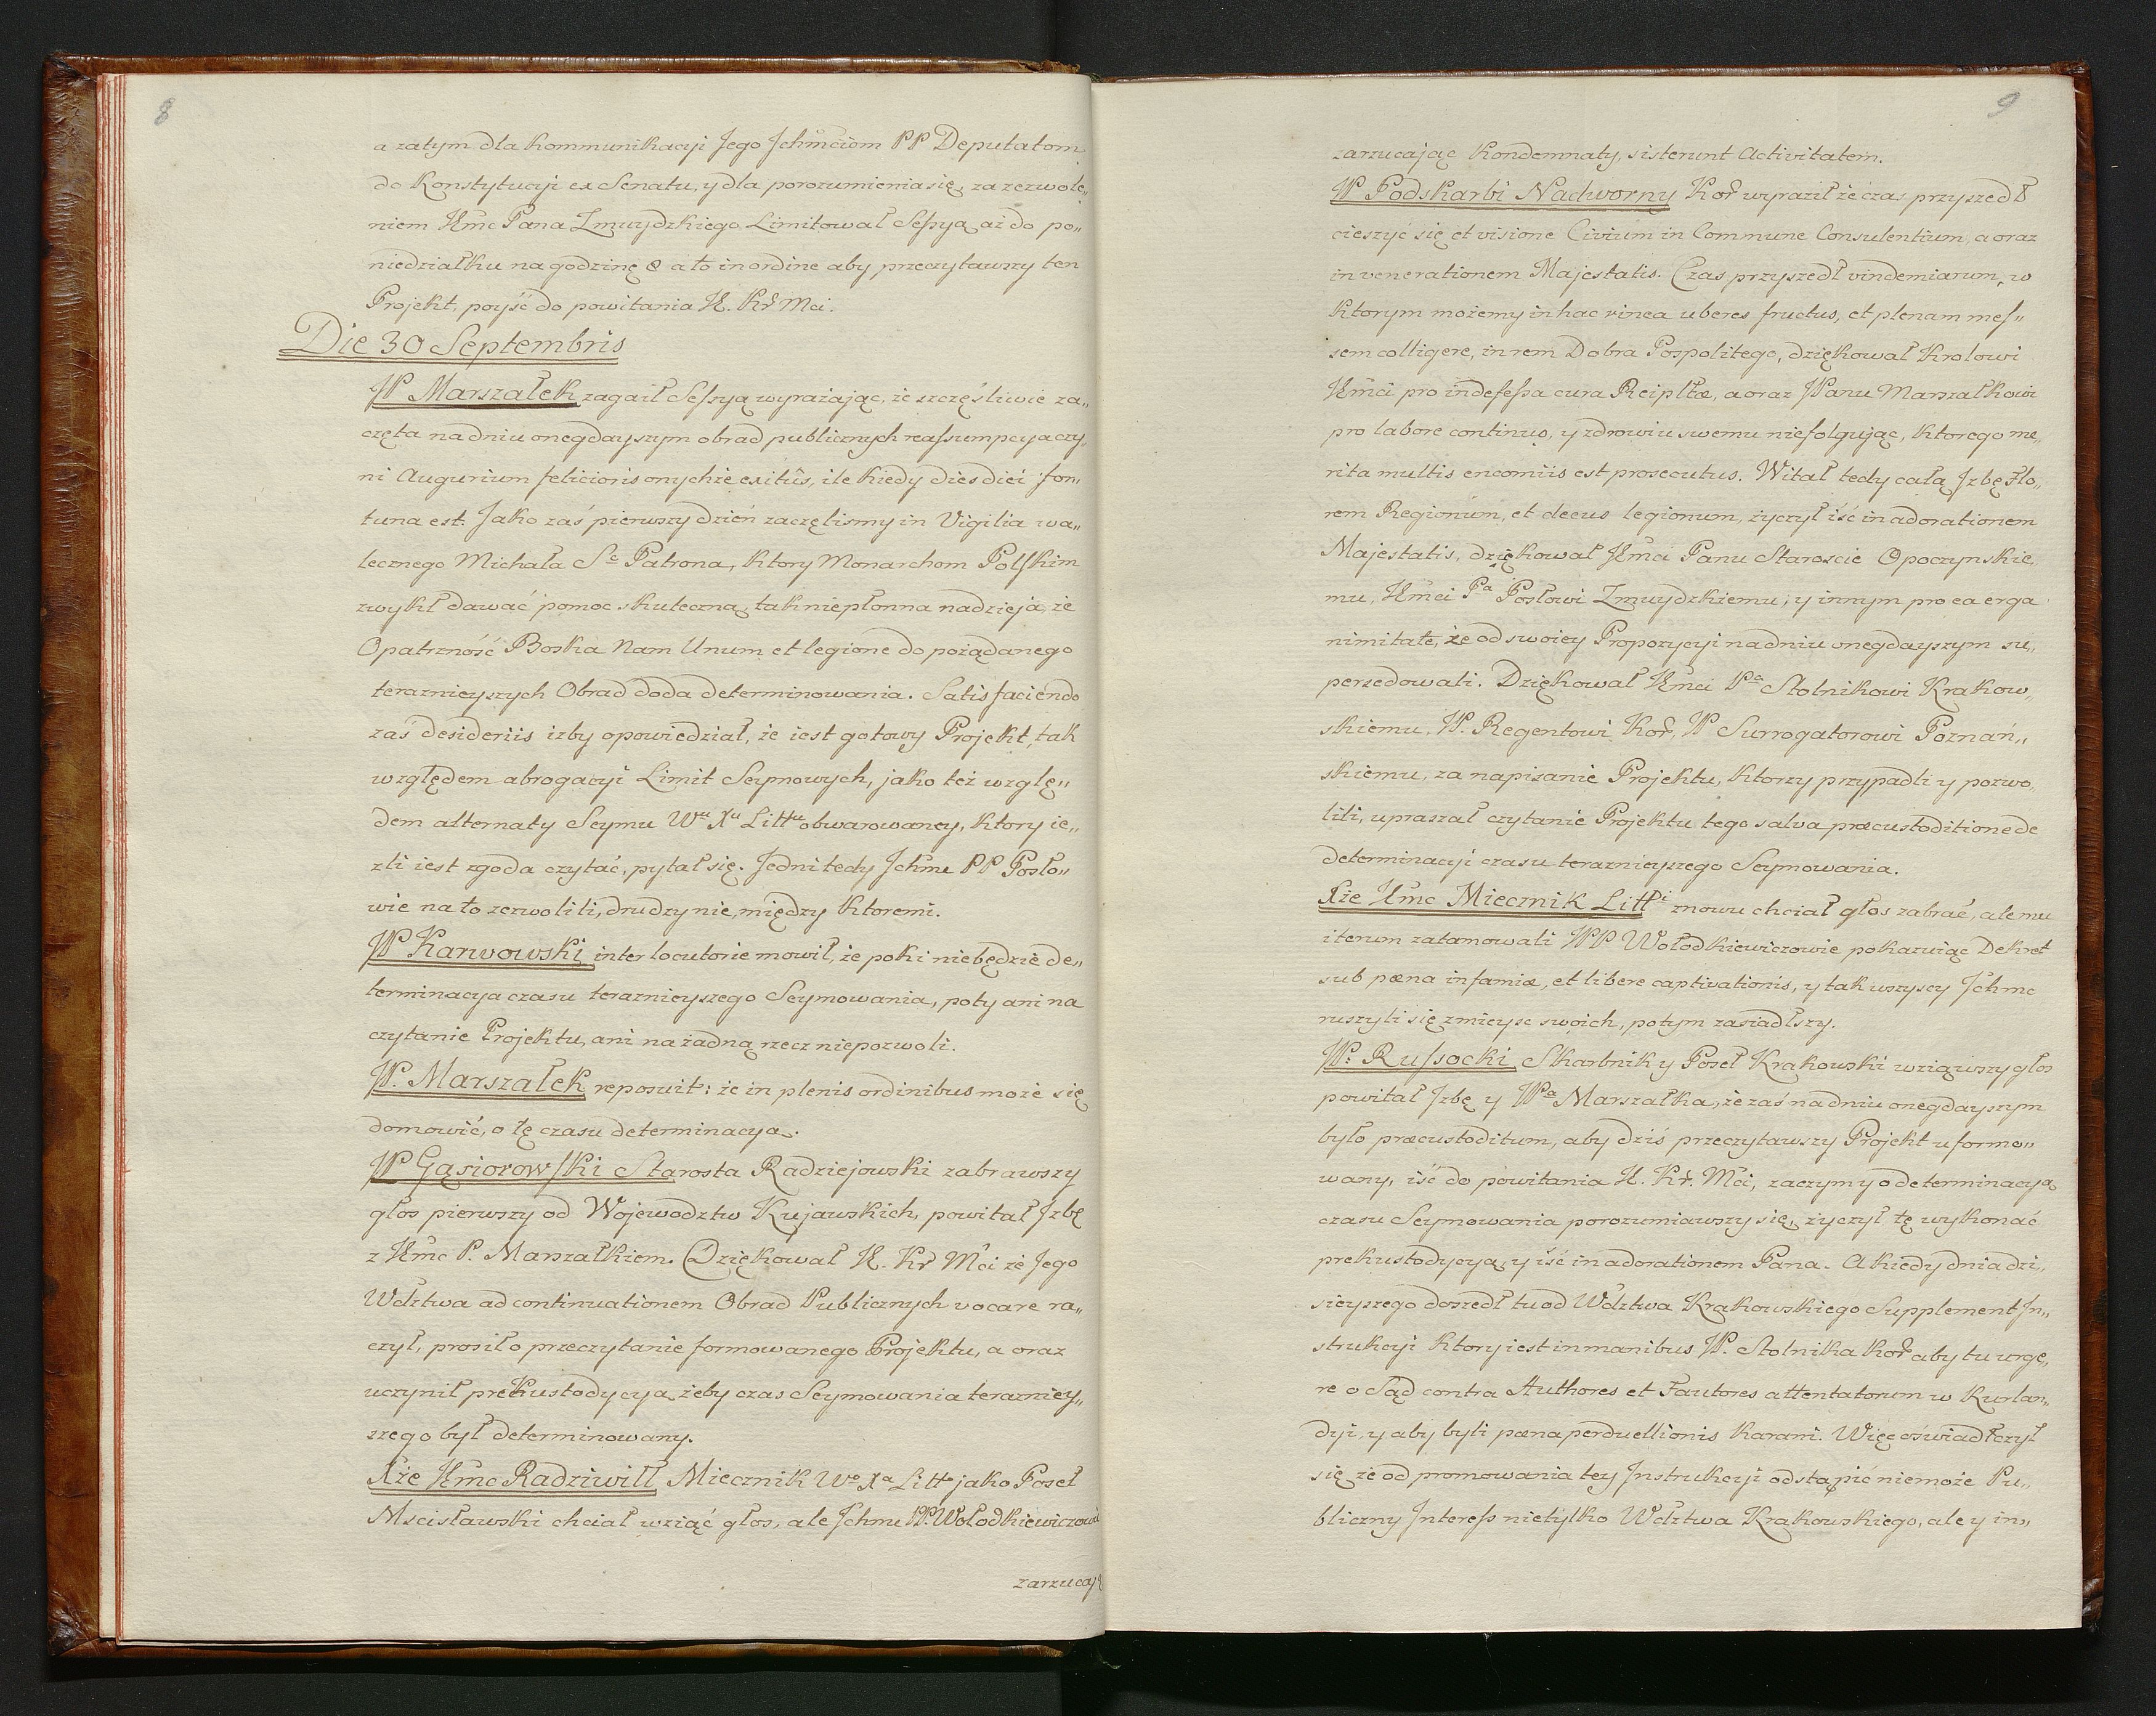 8
a zatym dla kommunikacyi Jego Jchmciom PP Deputatom
do Konstytucyi ex Senatu, y dla porozumienia się, za zezwole„
niem JEmc Pana Zmuydzkiego Limitował Sessyą aż do po„
niedziałku na godzinę 8 a to in ordine aby przeczytawszy ten
Projekt, poyść do powitania JE. Kr̃ Mci.
Die 30 Septembris
JP Marszałek zagaił Sessyą wyrażając, że szczęśliwie za„
częta na dniu onegdayszym obrad publicznych reassumpcya czy„
ni Augurium felicioris onychże exitûs, ile kiedy dies diei for„
tuna est. Jako zaś pierwszy dzień zaczęlismy in Vigilia wa„
lecznego Michała Sº Patrona, ktory Monarchom Polskim
zwykł dawać pomoc skuteczną, tak niepłonna nadzieja, że
Opatrzność Boska Nam Unum et legione do pożądanego
teraznieyszych Obrad doda determinowania. Satisfaciendo
zaś desideriis izby opowiedział, że iest gotowy Projekt, tak
względem abrogacyi Limit Seymowych, jako też wzglę„
dem alternaty Seymu Wu Xu Littu obwarowaney, ktory ie„
zli iest zgoda czytać, pytał się. Jedni tedy Jchmc PP Posło„
wie na to zezwolili, drudzy nie, między ktoremi.
JP Karwowski interlocutorie mowił, że poki niebędzie de„
terminacya czasu teraznieyszego Seymowania, poty ani na
czytanie Projektu, ani na żadną rzecz niepozwoli.
JP. Marszałek reposuit: że in plenis ordinibus może się
domowić, o tę czasu determinacyą.
JP Gąsiorowski Starosta Radziejowski zabrawszy
głos pierwszy od Wojewodztw Kujawskich, powitał Jzbę
z JEmc P. Marszałkiem. Dziękował JE. Kr̃ Mci że Jego
Wdztwa ad continuationem Obrad Publicznych vocare ra„
czył, prosił o przeczytanie formowanego Projektu, a oraz
uczynił prekustodycyą, żeby czas Seymowania terazniey„
szego był determinowany.
Xże JEmc Radziwiłł Miecznik Wo Xa Litto jako Poseł
Mscisławski chciał wziąć głos, ale Jchmc PP. Wołodkiewiczowie
zarzucają
9
zarzucając Kondemnaty, sisterunt Activitatem.
JP Podskarbi Nadworny Kor̃ wyraził że czas przyszedł
cieszyć się et visione Civium in Commune Consulentium, a oraz
in venerationem Majestatis. Czas przyszedł vindemiarum, w
ktorym możemy in hac vinea uberes fructus, et plenam mes„
sem colligere, in rem Dobra Pospolitego, dziękował Krolowi
JEmci pro indefessa cura Reipltæ, a oraz JPanu Marszałkowi
pro labore continuo, y zdrowiu swemu niefolgując, ktorego me„
rita multis encomiis est prosecutus. Witał tedy całą Jzbę Flo„
rem Regionum, et decus legionum, życzył iść in adorationem
Majestatis, dziękował JEmci Panu Staroscie Opoczynskie„
mu, JEmci Pa Posłowi Zmuydzkiemu, y innym pro ea erga
nimitate, że od swoiey Propozycyi na dniu onegdayszym su„
persedowali. Dziękował JEmci Pa Stolnikowi Krakow„
skiemu, JP. Regentowi Kor̃, JP Surrogatorowi Poznań„
skiemu, za napisanie Projektu, ktorzy przypadli y pozwo„
lili, upraszał czytanie Projektu tego salva præcustoditione de
determinacyi czasu teraznieyszego Seymowania.
Xże JEmc Miecznik Litti znowu chciał głos zabrać, ale mu
iterum zatamowali JPP Wołodkiewiczowie pokazuiąc Dekret
sub pæna infamiæ, et libere captivationis, y tak wszyscy Jchmc
ruszyli się z mieysc swoich, potym zasiadłszy.
JP. Russocki Skarbnik y Poseł Krakowski wziąwszy głos
powitał Jzbę y JPa Marszałka, że zaś na dniu onegdayszym
było præcustoditum, aby dziś przeczytawszy Projekt uformo„
wany, iść do powitania JE. Kr̃. Mci, zaczym y o determinacyą
czasu Seymowania porozumiawszy się, życzył tę wykonać
prekustodycyą, y iść in adorationem Pana. A kiedy dnia dzi„
sieyszego doszedł tu od Wdztwa Krakowskiego Supplement Jn„
strukcyi ktory iest in manibus JP. Stolnika Kor̃ aby tu urge„
re o Sąd contra Authores et Fautores attentatorum w Kurlan„
dyi, y aby byli pæna perduellionis karani. Więc oświadłczył
się że od promowania tey Jnstrukcyi odstąpić niemoże Pu„
bliczny Jnteress nietylko Wdztwa Krakowskiego, ale y in„